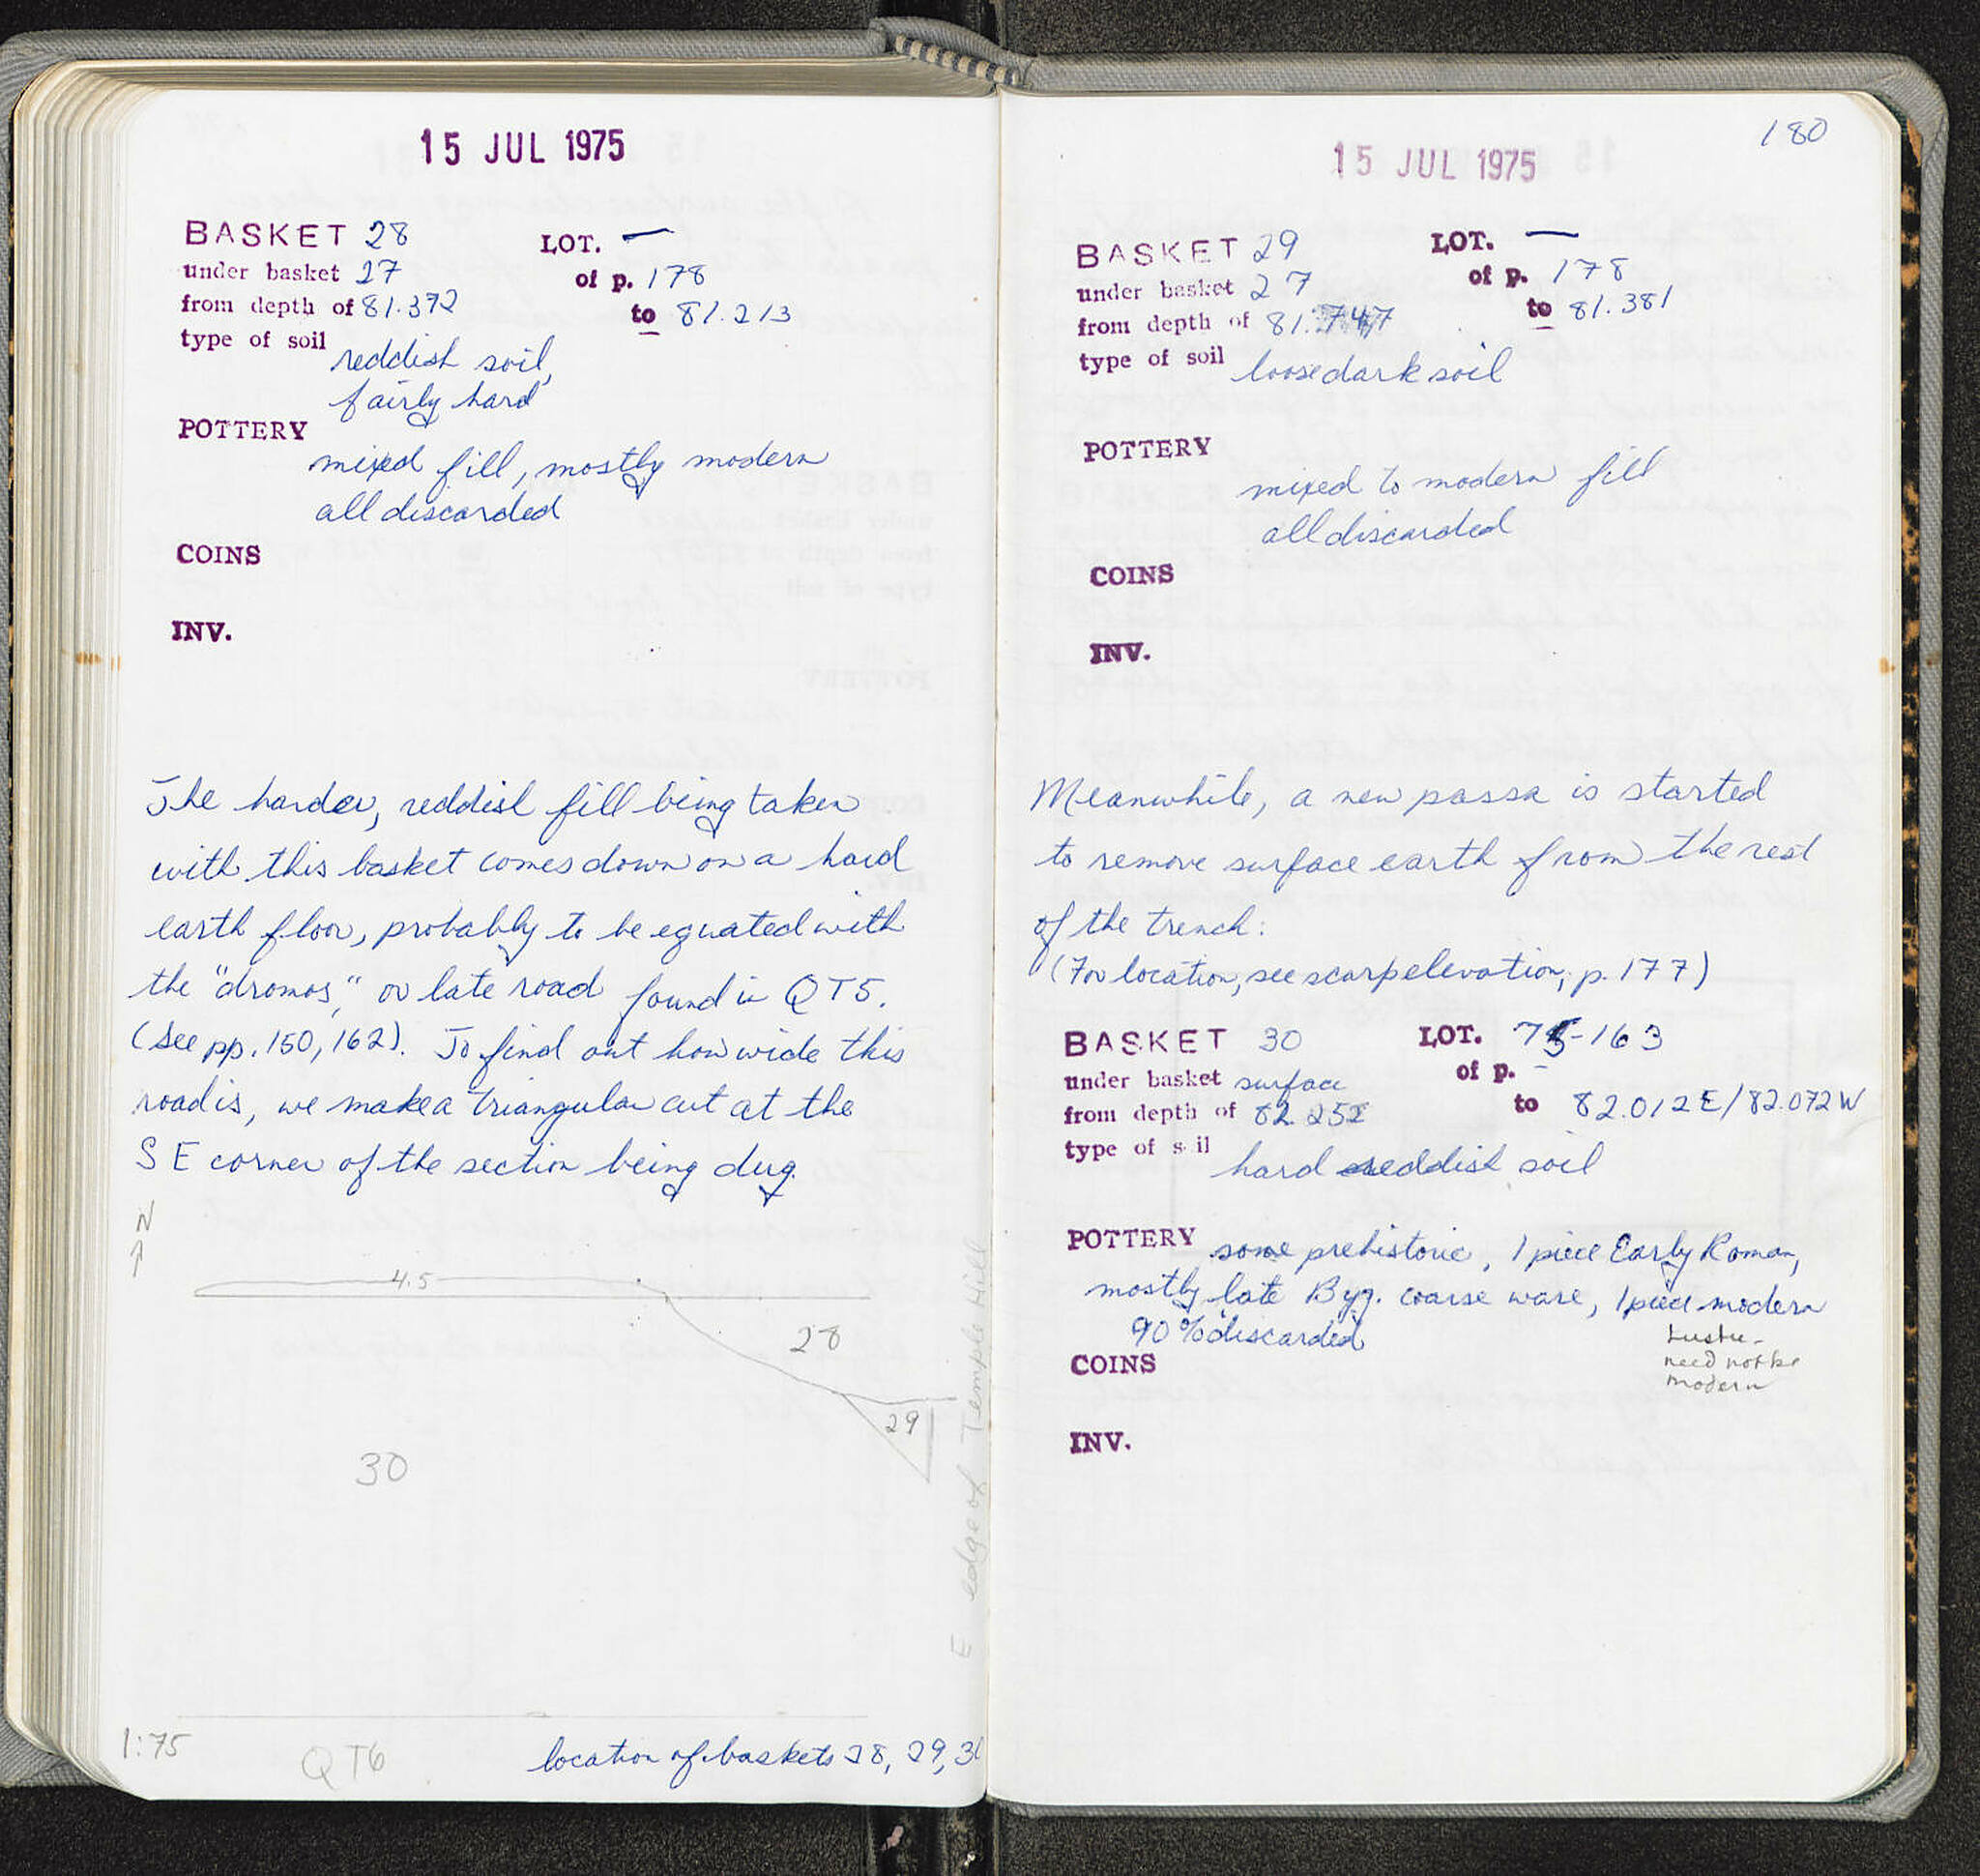 15 JUL 1975
BASKET 28 LOT. —
under basket 27 of p. 178
from depth of 81.372 to 81.213
type of soil reddish soil,
fairly hard
POTTERY
mixed fill, mostly modern
all discarded
COINS
INV.
The harder, reddish fill being taken
with this basket comes down on a hard
earth floor, probably to be equated with
the "dromos," or late road found in QT5.
(See pp. 150, 162). To find out how wide this
road is, we make a triangular cut at the
SE corner of the section being dug.
N
4.5
28
29
30
E edge of Temple Hill
1:75
QT6
location of baskets 28, 29, 30
180
15 JUL 1975
BASKET 29 LOT. —
under basket 27 of p. 178
from depth of 81.747 to 81.381
type of soil loose dark soil
POTTERY
mixed to modern fill
all discarded
COINS
INV.
Meanwhile, a new passa is started
to remove surface earth from the rest
of the trench:
(For location, see scarp elevation, p. 177)
BASKET 30 LOT. 75-163
under basket surface of p. -
from depth of 82.252 to 82.012E/82.072W
type of soil hard reddish soil
POTTERY some prehistoric, 1 piece Early Roman,
mostly late Byz. coarse ware, 1 piece modern
90% discarded
need not be
modern
COINS
INV.